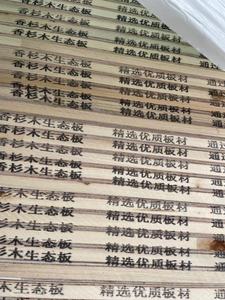 香杉木生态板 精选优质板材
香杉木生态板 精选优质板材
香杉木生态板 精选优质板材 通
香杉木生态板 精选优质板材 通
香杉木生态板 精选优质板材 通
香杉木生态板 精选优质板材 通
香杉木生态板 精选优质板材 通
香杉木生态板 精选优质板材 通
香杉木生态板 精选优质板材 通
香杉木生态板 精选优质板材 通
香杉木生态板 精选优质板材 通
香杉木生态板 精选优质板材 通
香杉木生态板 精选优质板材 通
香杉木生态板 精选优质板材 通
香杉木生态板 精选优质板材
香杉木生态板 精选优质板材
香杉木生态板 精选优质板材